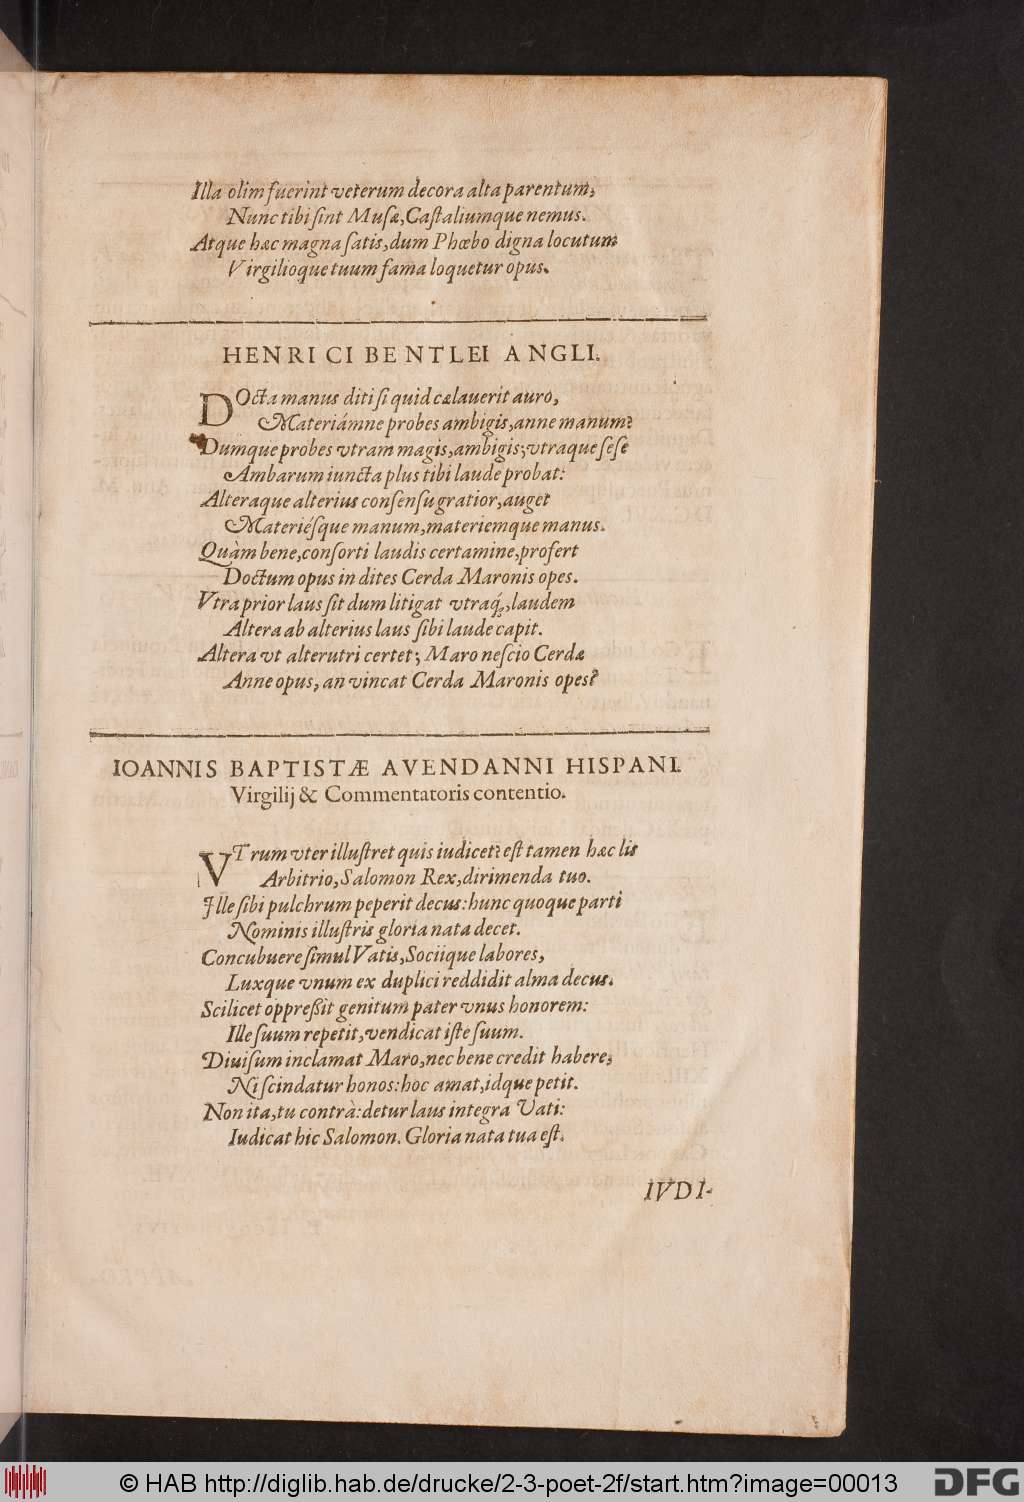 Illa olim fuerint veterum decora alta parentum,
Nunc tibi sint Musæ, Castaliumque nemus.
Atque hæc magna satis, dum Phœbo digna locutum
Virgilioque tuum fama loquetur opus.
HENRICI BENTLEI ANGLI.
DOcta manus diti si quid cælauerit auro,
Materiámne probes ambigis, anne manum?
Dumque probes vtram magis, ambigis; vtraque sese
Ambarum iuncta plus tibi laude probat:
Alteraque alterius consensu gratior, auget
Materiésque manum, materiemque manus.
Quàm bene, consorti laudis certamine, profert
Doctum opus in dites Cerda Maronis opes.
Vtra prior laus sit dum litigat vtraq;, laudem
Altera ab alterius laus sibi laude capit.
Altera vt alterutri certet; Maro nescio Cerdæ
Anne opus, an vincat Cerda Maronis opes?
IOANNIS BAPTISTÆ AVENDANNI HISPANI.
Virgilij & Commentatoris contentio.
VTrum vter illustret quis iudicet? est tamen hæc lis
Arbitrio, Salomon Rex, dirimenda tuo.
Ille sibi pulchrum peperit decus: hunc quoque parti
Nominis illustris gloria nata decet.
Concubuere simul Vatis, Sociique labores,
Luxque vnum ex duplici reddidit alma decus.
Scilicet oppreßit genitum pater vnus honorem:
Ille suum repetit, vendicat iste suum.
Diuisum inclamat Maro, nec bene credit habere,
Ni scindatur honos: hoc amat, idque petit.
Non ita, tu contrà: detur laus integra Vati:
Iudicat hic Salomon. Gloria nata tua est.
IVDI-
© HAB http://diglib.hab.de/drucke/2-3-poet-2f/start.htm?image=00013
DFG